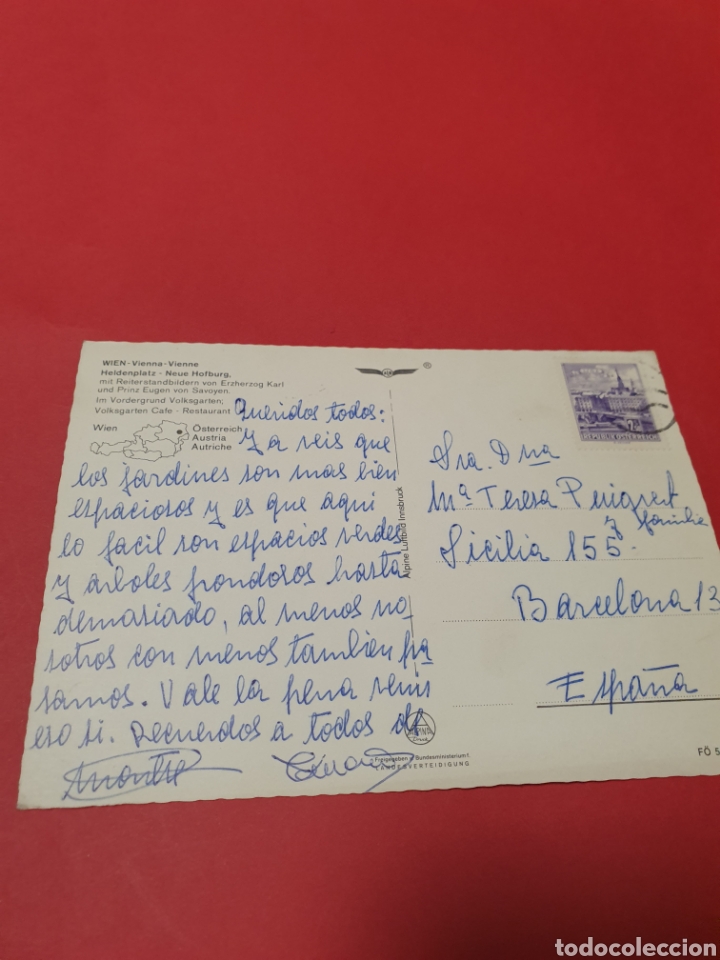 WIEN - Vienna - Vienne
Heldenplatz - Neue Hofburg,
mit Reiterstandbildern von Erzherzog Karl
und Prinz Eugen von Savoyen.
Im Vordergrund Volksgarten;
Volksgarten Cafe - Restaurant
Wien
Österreich
Austria
Autriche
Queridos todos:
Ya veis que
los jardines son mas bien
espaciosos y es que aqui
lo facil son espacios verdes
y arboles frondosos hasta
demasiado, al menos no
sotros con menos tambien pa
samos. Vale la pena venir
eso si. Recuerdos a todos de
Montse
Alpine Luftbild Innsbruck
ALPINA
Druck
Freigegeben v. Bundesministerium f.
LANDESVERTEIDIGUNG
®
Sra. Dna
Mª Teresa Puigvert
y familia
Sicilia 155
Barcelona 13
España
FÖ 5
todocoleccion